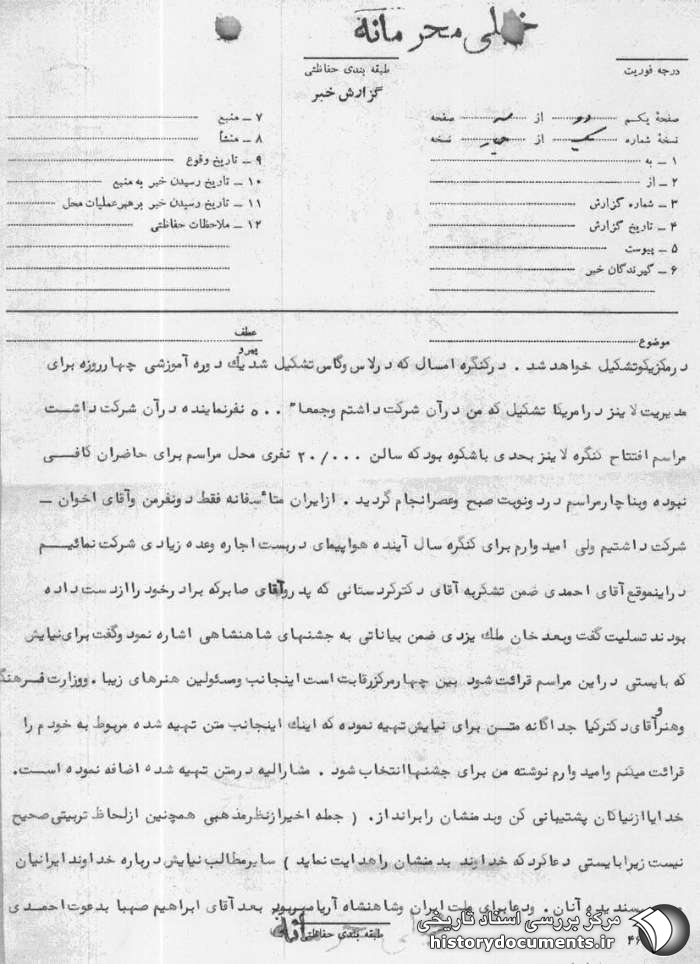 خیلی محرمانه
طبقه بندی حفاظتی
درجه فوریت
گزارش خبر
صفحهٔ یکم دو از سه صفحه
نسخهٔ شماره یک از چهار نسخه
۱ ـ به
۲ ـ از
۳ ـ شماره گزارش
۴ ـ تاریخ گزارش
۵ ـ پیوست
۶ ـ گیرندگان خبر
۷ ـ منبع
۸ ـ منشأ
۹ ـ تاریخ وقوع
۱۰ ـ تاریخ رسیدن خبر به منبع
۱۱ ـ تاریخ رسیدن خبر برهبر عملیات محل
۱۲ ـ ملاحظات حفاظتی
موضوع
عطف
پیرو
درمکزیکوتشکیل خواهد شد . درکنگره امسال که درلاس وگاس تشکیل شد یک دوره آموزشی چهارروزه برای
مدیریت لاینز درامریکا تشکیل که من درآن شرکت داشتم وجمعا" ۵۰۰ نفرنماینده درآن شرکت داشت
مراسم افتتاح کنگره لاینز بحدی باشکوه بود که سالن ۲۰/۰۰۰ نفری محل مراسم برای حاضران کافــی
نبوده وبناچارمراسم دردونوبت صبح وعصرانجام گردید . ازایران متأسفانه فقط دونفرمن وآقای اخوان ـ
شرکت داشتیم ولی امیدوارم برای کنگره سال آینده هواپیمای دربست اجاره وعده زیادی شرکت نمائیــم
دراینموقع آقای احمدی ضمن تشکربه آقای دکترکردستانی که پدر وآقای صابرکه برادرخود راازدست داده
بودند تسلیت گفت وبعد خان ملک یزدی ضمن بیاناتی به جشنهای شاهنشاهی اشاره نمود وگفت برای نیایش
که بایستی دراین مراسم قرائت شود بین چهارمرکزرقابت است اینجانب ومسئولین هنرهای زیبا . ووزارت فرهنگ
وهنر و آقای دکترکیا جداگانه متــن برای نیایش تهیه نموده که اینک اینجانب متن تهیه شده مربوط به خودم را
قرائت میکنم وامیدوارم نوشته من برای جشنهاانتخاب شود . مشارالیه درمتن تهیه شده اضافه نموده اســت.
خدایاازنیاکان پشتیبانی کن وبدمنشان رابرانداز. ( جمله اخیرازنظرمذهبی همچنین ازلحاظ تربیتی صحیح
نیست زیرابایستی دعاکرد که خداوند بدمنشان راهدایت نماید ) سایرمطالب نیایش درباره خداوند ایرانیان
پسندیده آنان . ودعابرای ملت ایران وشاهنشاه آریامهربود بعد آقای ابراهیم صهبا بدعوت احمــدی
طبقه بندی حفاظتی
مرکز بررسی اسناد تاریخی
historydocuments.ir